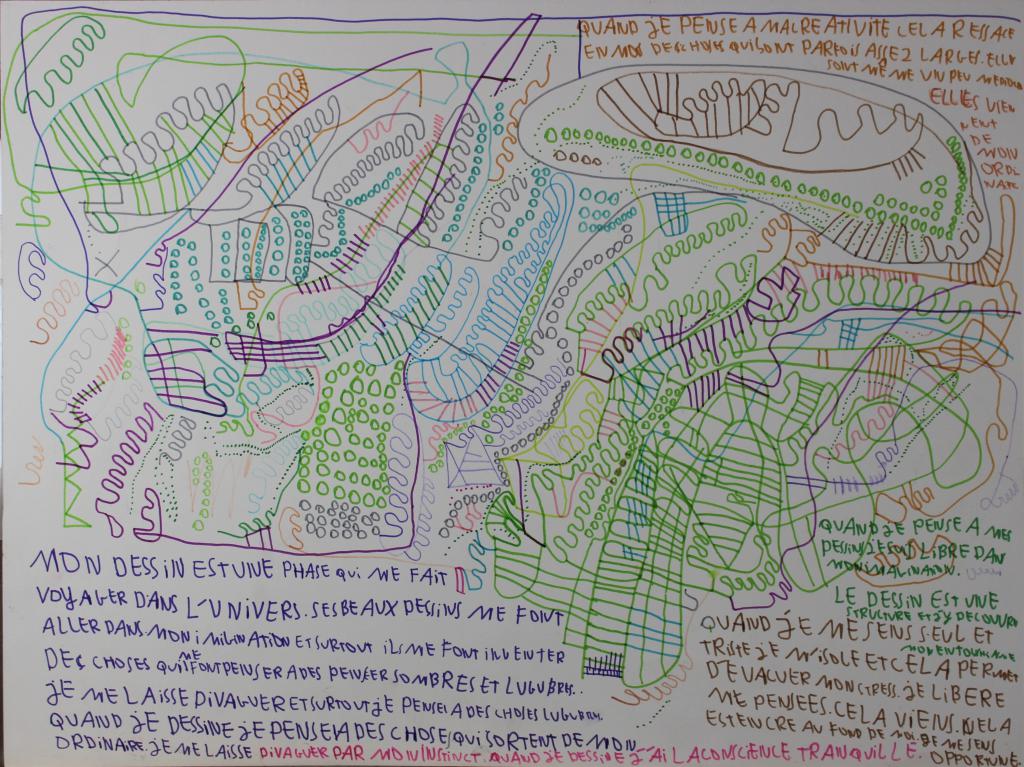 QUAND JE PENSE A MA CREATIVITE CELA RESSACE
EN MOI DES CHOSES QUI SONT PARFOIS ASSEZ LARGES. ELLE
SONT MEME UN PEU
ELLES VIEN
NENT
DE
MON
ORDI
NAIRE
QUAND JE PENSE A MES
DESSIN JE SUIS LIBRE DAN
MON IMAGINATION.
LE DESSIN EST UNE
STRUCTURE ET J'Y DECOUVRE
MON ENTOURAGE
QUAND JE ME SENS SEUL ET
TRISTE JE M'ISOLE ET CELA PERMET
D'EVACUER MON STRESS. JE LIBERE
ME PENSEES. CELA VIENS. DE LA
EST ENCRE AU FOND DE MOI. JE ME SENS
OPPORTUNE.
MON DESSIN EST UNE PHASE QUI ME FAIT
VOYAGER DANS L'UNIVERS. SES BEAUX DESSINS ME FONT
ALLER DANS MON IMIGINATION ET SURTOUT ILS ME FONT INVENTER
DES CHOSES QUI ME FONT PENSER A DES PENSER SOMBRES ET LUGUBRES..
JE ME LAISSE DIVAGUER ET SURTOUT JE PENSE A DES CHOSES LUGUBRE.
QUAND JE DESSINE JE PENSE A DES CHOSE QUI SORTENT DE MON
ORDINAIRE. JE ME LAISSE DIVAGUER PAR MON INSTINCT. QUAND JE DESSINE J'AI LA CONSCIENCE TRANQUILLE.